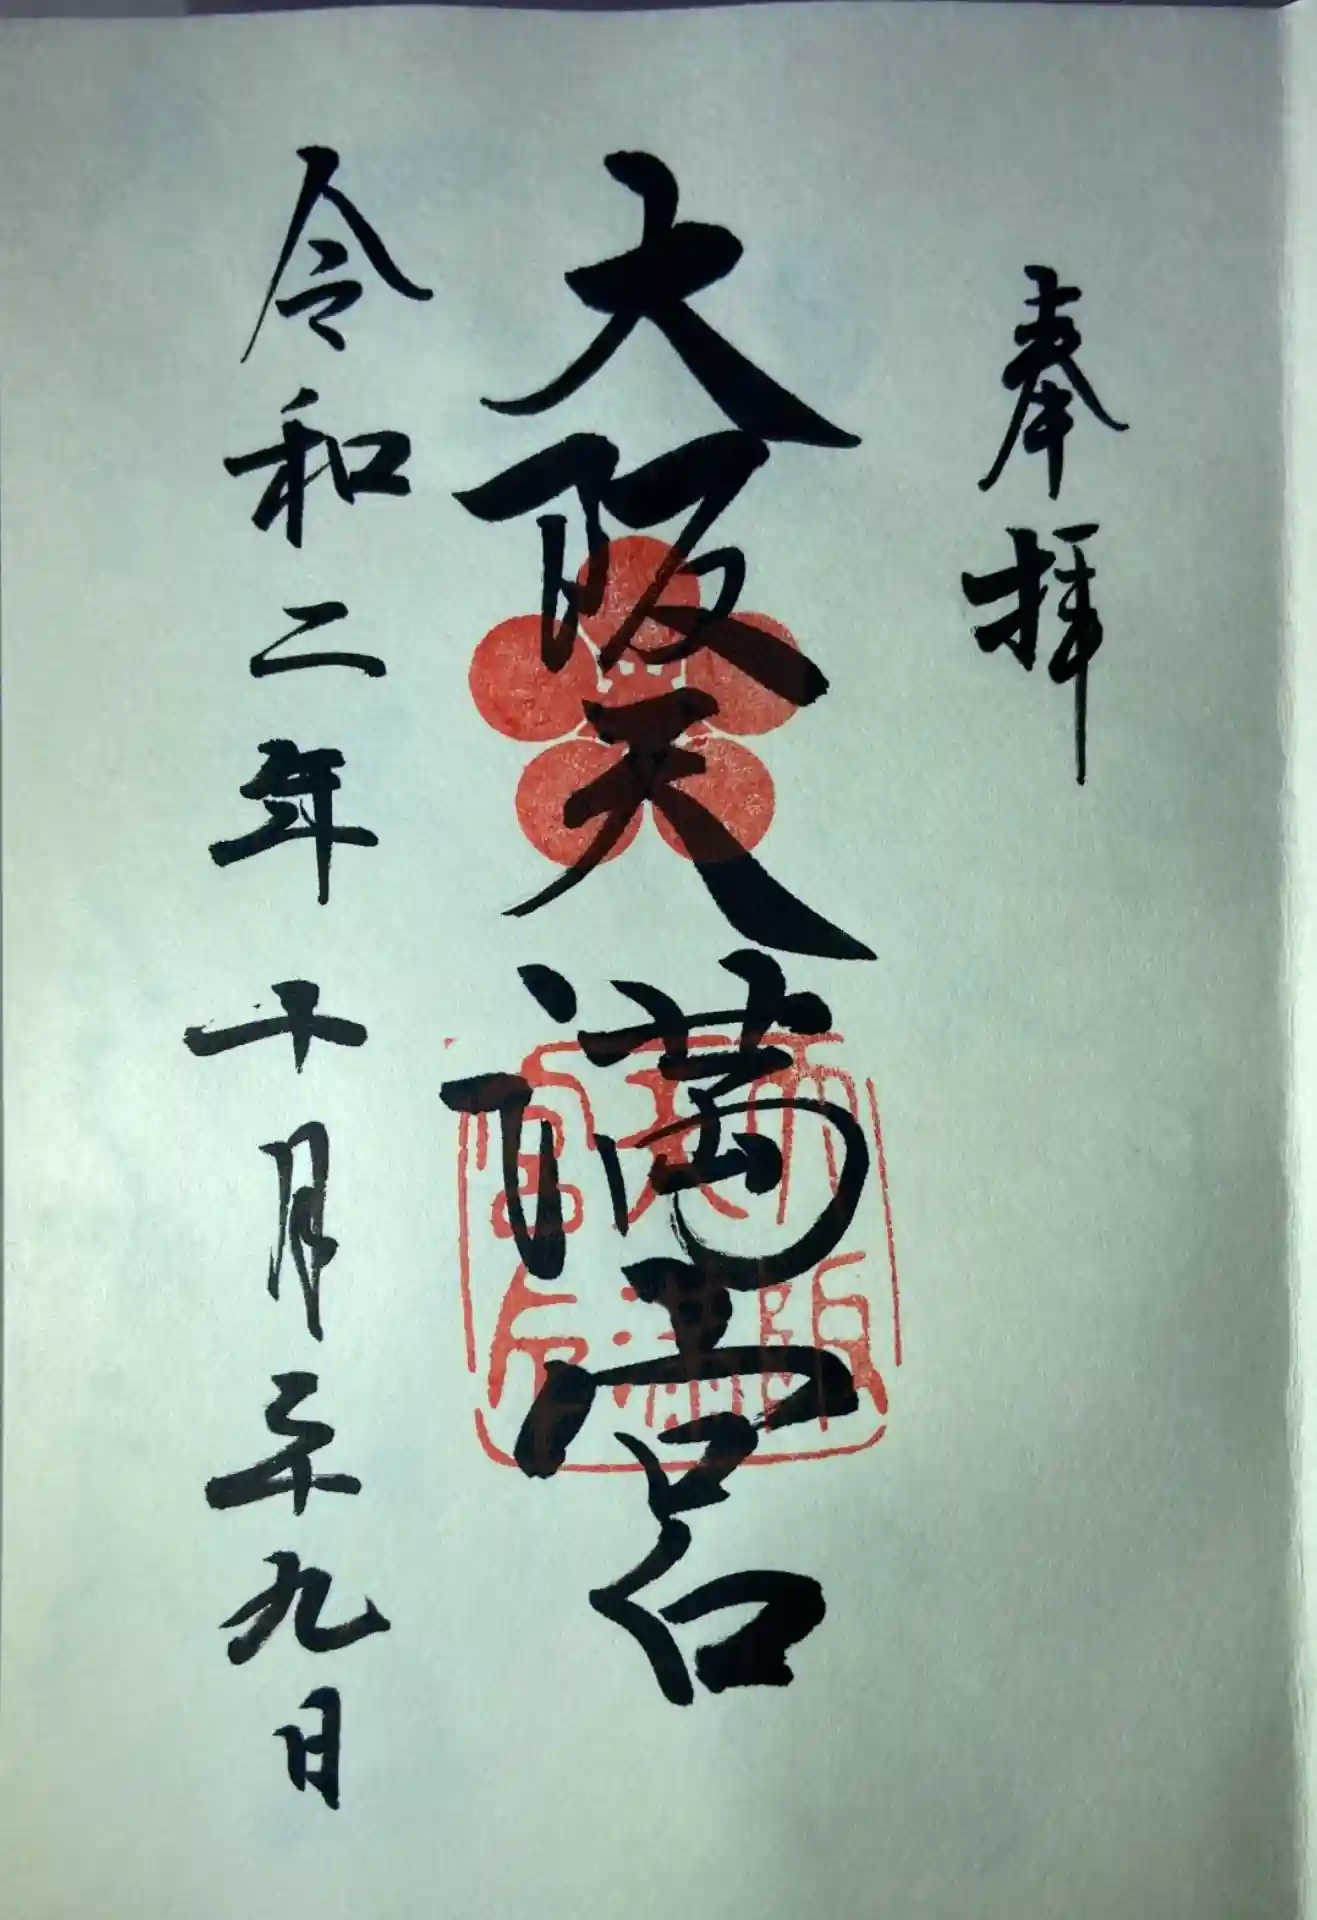 奉拝
大阪天満宮
令和二年十月二十九日
大阪
天満
宮印